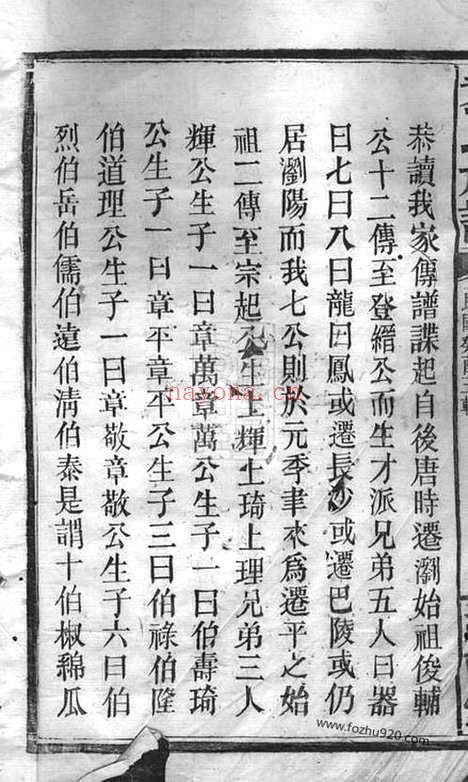 恭讀我家傳譜諜起自後唐時遷瀏始祖俊輔
公十二傳至登縉公而生才派兄弟五人曰器
曰七曰八曰龍曰鳳或遷長沙或遷巴陵或仍
居瀏陽而我七公則於元季聿來為遷平之始
祖二傳至宗起公生上輝上琦上理兄弟三人
輝公生子一曰章萬章萬公生子一曰伯壽琦
公生子一曰章平章平公生子三曰伯祿伯隆
伯道理公生子一曰章敬章敬公生子六曰伯
烈伯岳伯儒伯遠伯清伯泰是謂十伯椒綿瓜
nayona.cn
www.fozhu920.com